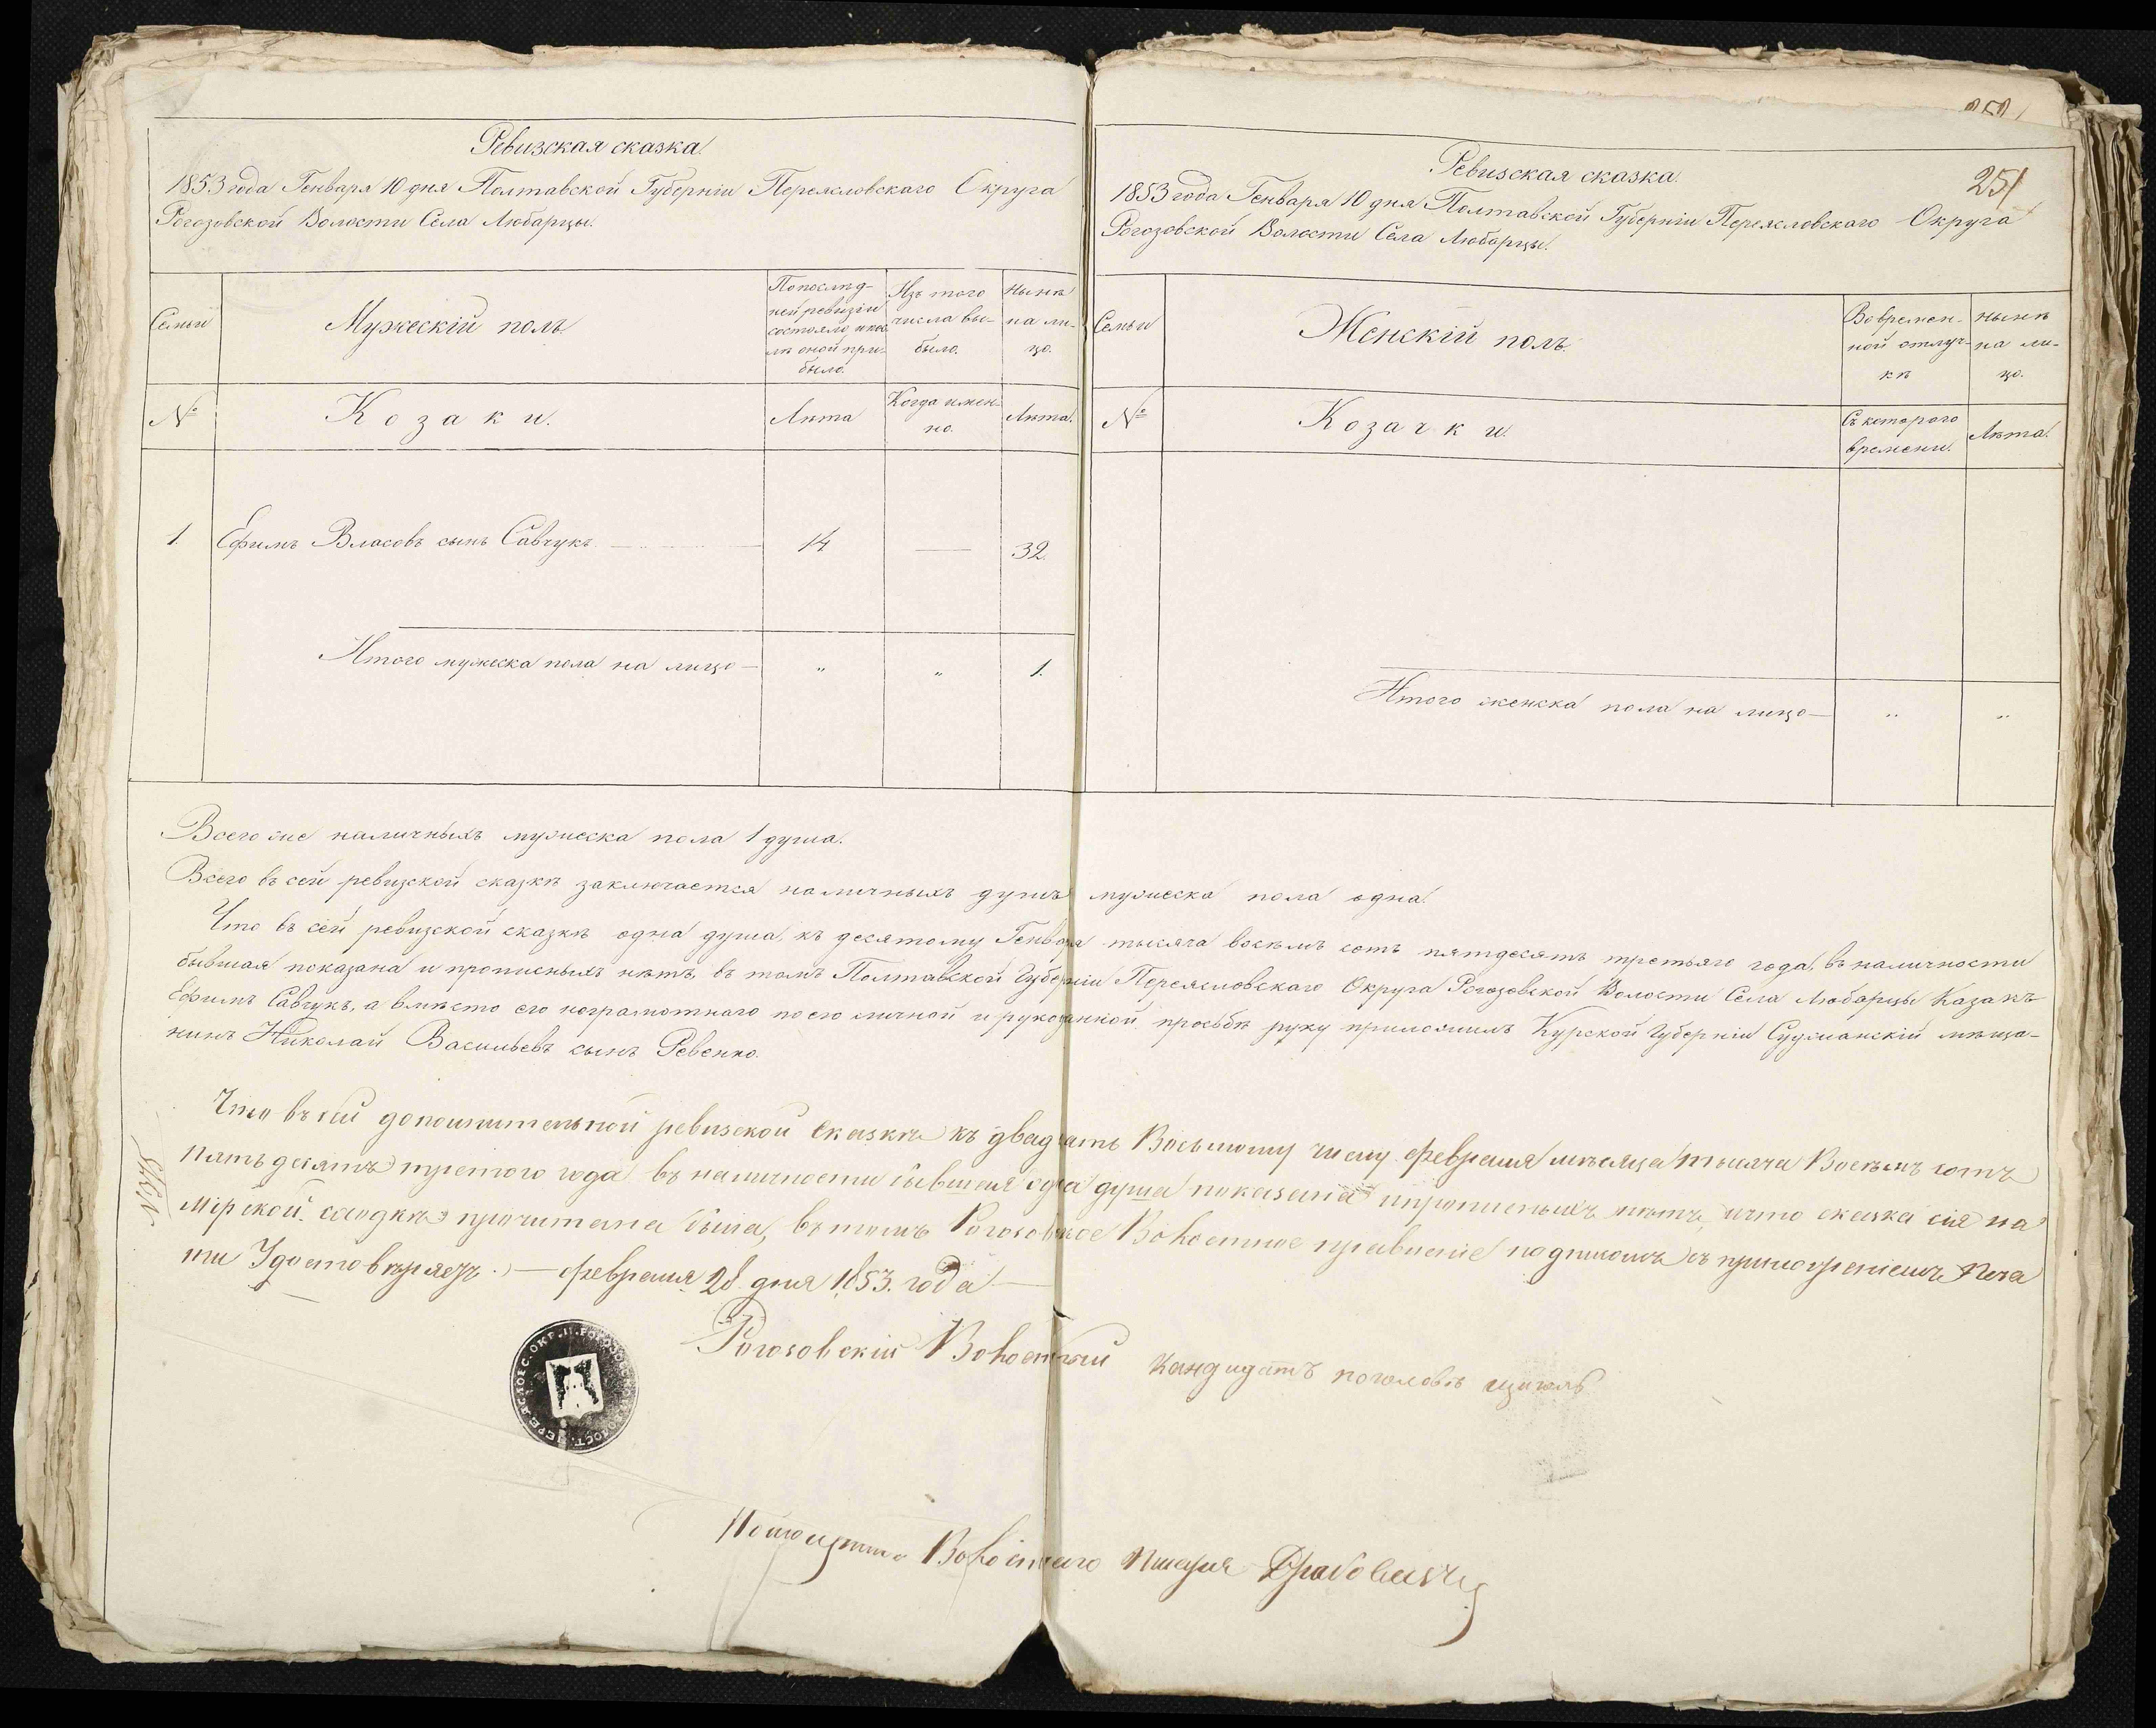 Ревизская сказка.
1853 года Генваря 10 дня Полтавской Губерніи Переясловскаго Округа
Рогозовской Волости Села Любарцы.
Семьи
Мужескій полъ
По послѣд-
ней ревизіи
состояло и пос-
лѣ оной при-
было.
Изъ того
числа вы-
было.
Нынѣ
на ли-
цо.
№
Козаки.
Лѣта
Когда имен-
но.
Лѣта.
1. Ефимъ Власовъ сынъ Савчукъ 14 — 32.
Итого мужеска пола на лицо — " " 1.
251
Ревизская сказка.
1853 года Генваря 10 дня Полтавской Губерніи Переясловскаго Округа
Рогозовской Волости Села Любарцы.
Семьи
Женскій полъ.
Во времен-
ной отлуч-
кѣ
Нынѣ
на ли-
цо.
№
Козачки.
Съ котораго
времени.
Лѣта.
Итого женска пола на лицо — " "
Всего же наличныхъ мужеска пола 1 душа.
Всего въ сей ревизской сказкѣ заключается наличныхъ душъ мужеска пола одна.
Что въ сей ревизской сказкѣ одна душа, къ десятому Генваря тысяча восемъ сотъ пятдесятъ третьяго года, въ наличности
бывшая показана и прописныхъ нѣтъ, въ томъ Полтавской Губерніи Переясловскаго Округа Рогозовской Волости Села Любарцы Казакъ
Ефимъ Савчукъ, а вмѣсто его неграмотнаго по его личной и рукоданной просьбѣ руку приложилъ Курской Губерніи Суджанскій мѣща-
нинъ Николай Васильевъ сынъ Ревенко.
Что въ сей дополнительной ревизской сказкѣ къ двадцать Восьмому числу февраля мѣсяца тысяча Восемъ сотъ
пятьдесятъ третого года въ наличности бывшая одна душа показана и прописныхъ нѣтъ, и что сказка сія на
Мірской сходкѣ прочитана была, въ томъ Рогозовское Волостное правленіе подписомъ съ приложеніемъ Печа
ти Удостовѣряетъ. — февраля 28 дня 1853. года
Рогозовскій Волостный Кандидатъ поголовѣ
Волостнаго Писаря